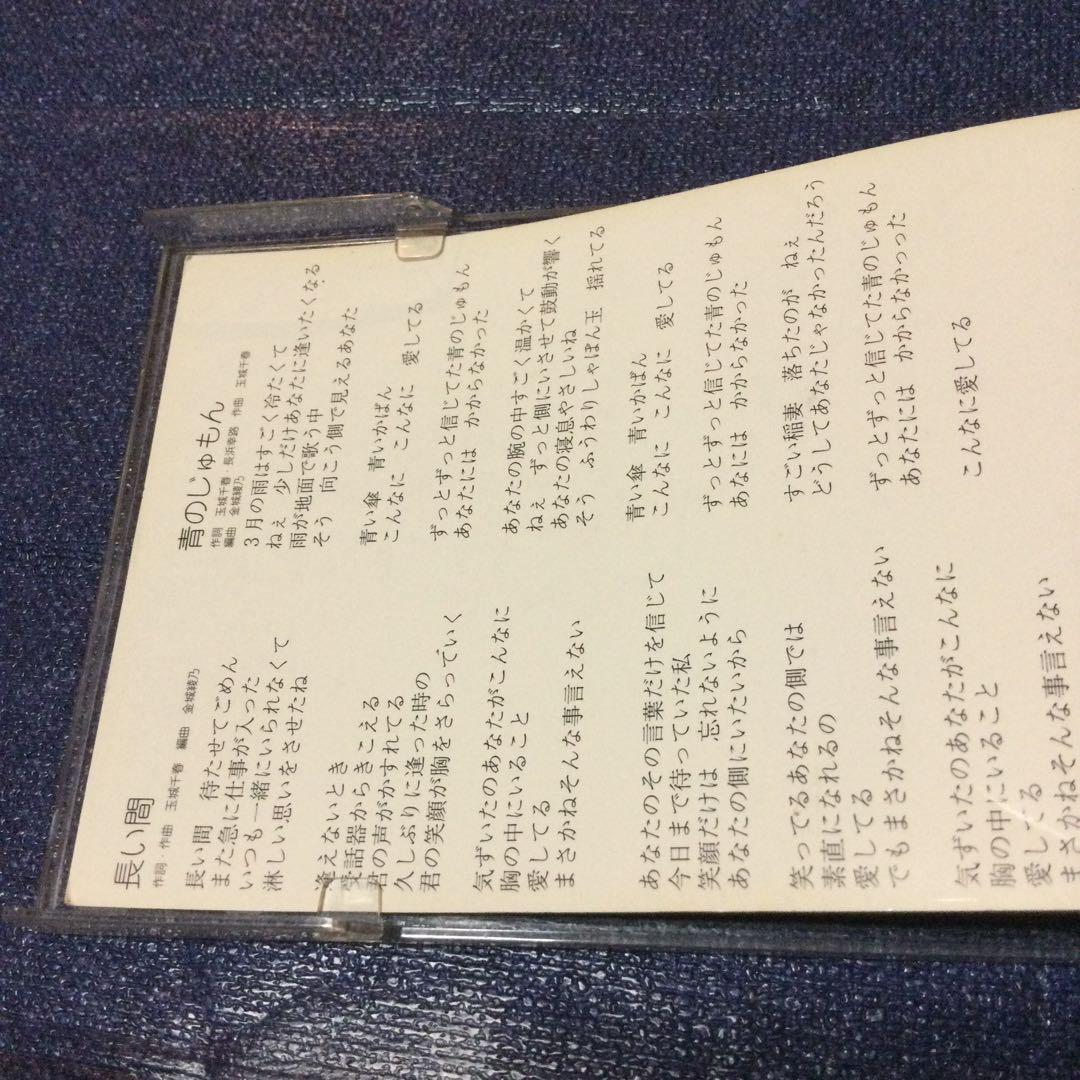 長い間
作詞・作曲 玉城千春 編曲 金城綾乃
長い間 待たせてごめん
また急に仕事が入った
いつも一緒にいられなくて
淋しい思いをさせたね
逢えないとき
受話器からきこえる
君の声がかすれてる
久しぶりに逢った時の
君の笑顔が胸をさらっていく
気ずいたのあなたがこんなに
胸の中にいること
愛してる
まさかねそんな事言えない
あなたのその言葉だけを信じて
今日まで待っていた私
笑顔だけは 忘れないように
あなたの側にいたいから
笑ってるあなたの側では
素直になれるの
愛してる
でもまさかねそんな事言えない
気ずいたのあなたがこんなに
胸の中にいること
愛してる
まさかねそんな事言えない
青のじゅもん
作詞 玉城千春・長浜幸路 作曲 玉城千春
編曲 金城綾乃
3月の雨はすごく冷たくて
ねぇ 少しだけあなたに逢いたくなる
雨が地面で歌う中
そう 向こう側で見えるあなた
青い傘 青いかばん
こんなに こんなに 愛してる
ずっとずっと信じてた青のじゅもん
あなたには かからなかった
あなたの腕の中すごく温かくて
ねぇ ずっと側にいさせて鼓動が響く
あなたの寝息やさしいね
そう ふうわりしゃぼん玉 揺れてる
青い傘 青いかばん
こんなに こんなに 愛してる
ずっとずっと信じてた青のじゅもん
あなには かからなかった
すごい稲妻 落ちたのが ねぇ
どうしてあなたじゃなかったんだろう
ずっとずっと信じてた青のじゅもん
あなたには かからなかった
こんなに愛してる